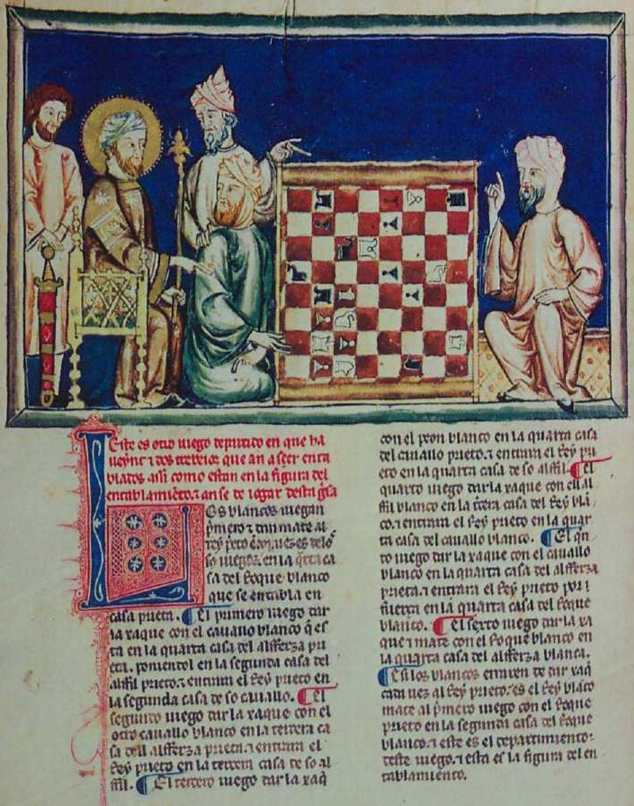 Este es otro iuego departido en que ha
ueynt & dos trebeios que an a seer enta
blados assi como estan en la figura del
entablamiẽto. & an se de iogar desta g̃sa
Los blancos iuegan
p̃mero & dan mate al
rey p̃eto en .vi. uezes delos
sos iuegos. en la q̃rta ca
sa del Roque blanco
que se entabla en
casa prieta. El primero iuego dar
la xaque con el cauallo blanco q̃ es
ta en la quarta casa del alfferza prie
ta. poniendol en la segunda casa del
alffil prieto. & entrara el Rey prieto en
la segunda casa de so cauallo. El
segundo iuego dar la xaque con el
otro cauallo blanco en la tercera ca
sa dell alfferza prieta. & entrara el
Rey prieto en la tercera casa de so al
ffil. El tercero iuego dar la xaq̃
con el peon blanco en la quarta casa
del cauallo prieto. & entrara el Rey pri
eto en la quarta casa de so alffil. El
quarto iuego dar la xaque con el al
ffil blanco en la t̃cera casa del Rey blã
co. & entrara el Rey prieto en la quar
ta casa del cauallo blanco. El q̃n
to iuego dar la xaque con el cauallo
blanco en la quarta casa del alfferza
prieta. & entrara el Rey prieto por
fuerça en la quarta casa del Roque
blanco. El sexto iuego dar la xa
que & mate con el Roque blanco en
la quarta casa del alfferza blanca.
E si los blancos erraren de dar xaq̃
cada uez al Rey prieto. es el Rey blãco
mate al p̃mero iuego con el Roque
prieto en la segunda casa del Roque
blanco. & este es el departimiento
deste iuego. & esta es la figura del en
tablamiento.